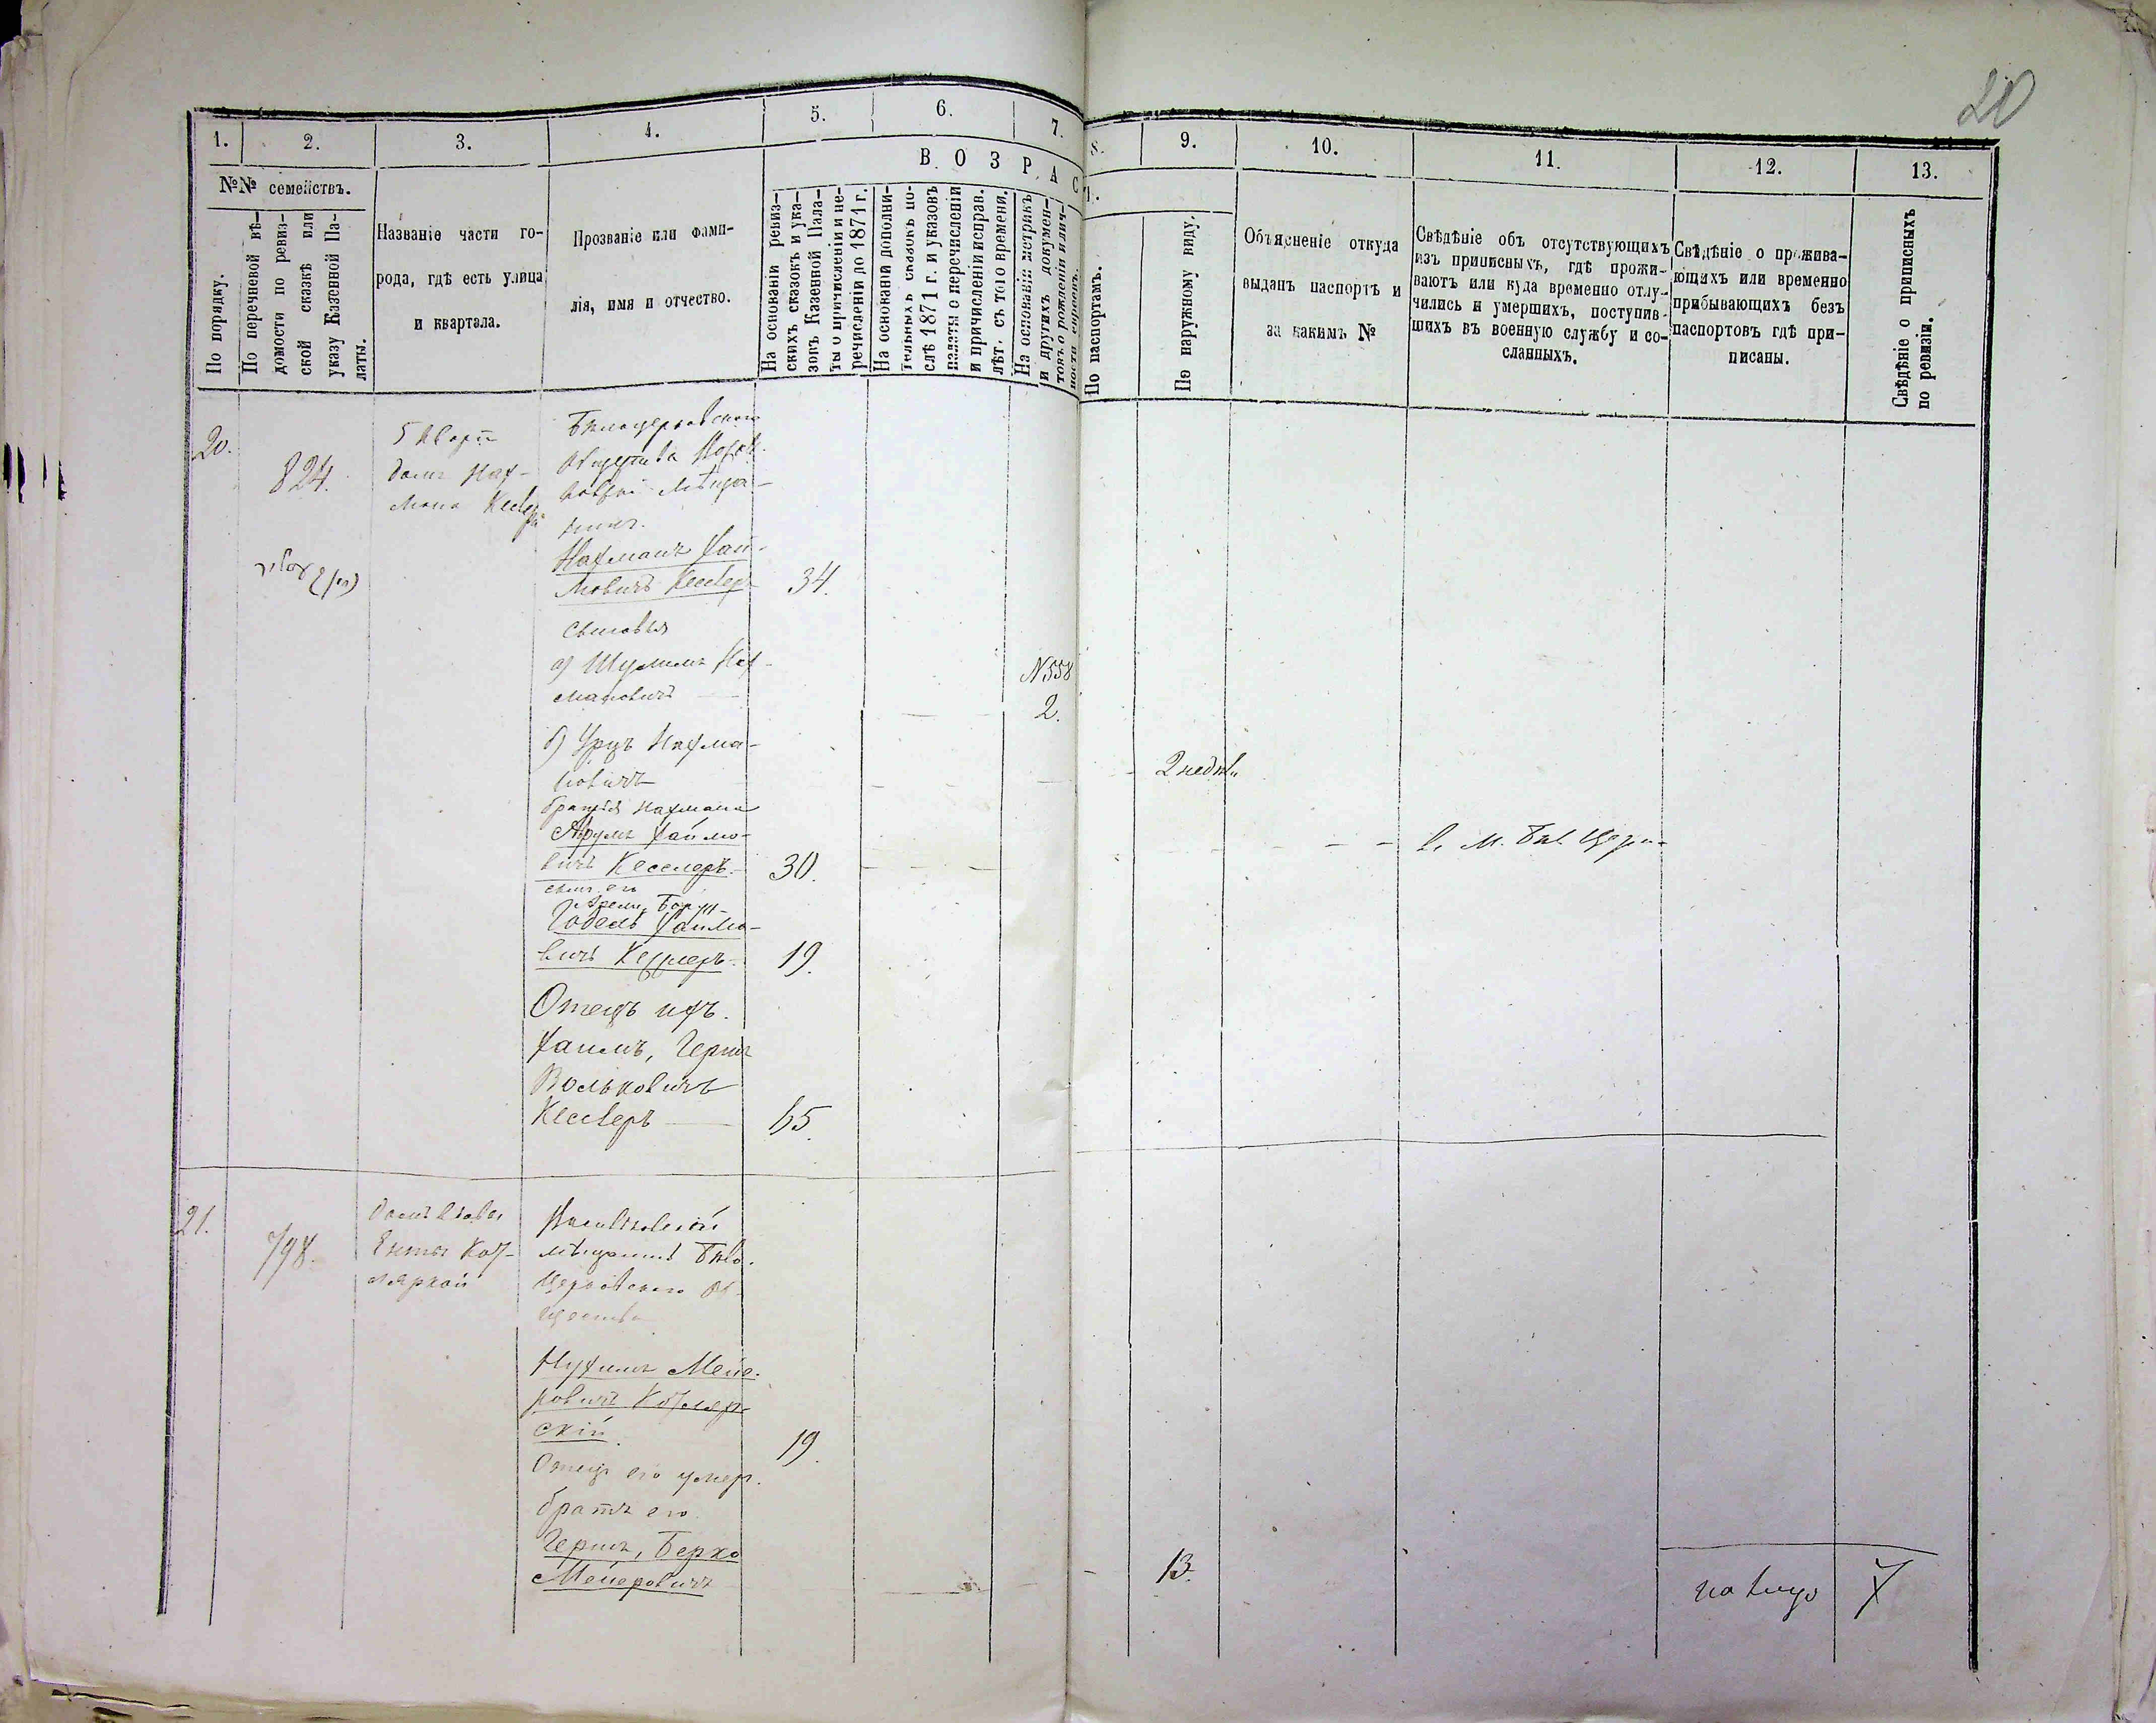 20
1. 2. 3. 4. 5. 6. 7. 8. 9. 10. 11. 12. 13.
№№ семействъ.
По порядку.
По перечневой вѣ-
домости по ревиз-
ской сказкѣ или
указу Казенной Па-
латы.
Названіе части го-
рода, гдѣ есть улица
и квартала.
Прозваніе или фами-
лія, имя и отчество.
ВОЗРАСТ.
На основаніи ревиз-
скихъ сказокъ и ука-
зовъ Казенной Пала-
ты о причисленіи и не-
речисленіи до 1871 г.
На основаніи дополни-
тельныхъ сказокъ по-
слѣ 1871 г. и указовъ
палаты о перечисленіи
и причисленіи исправ.
лѣт. съ того времени.
На основаніи метрикъ
и другихъ докумен-
товъ о рожденіи и лич-
ности евреевъ.
По паспортамъ.
По наружному виду.
Объясненіе откуда
выданъ паспортъ и
за какимъ №
Свѣдѣніе объ отсутствующихъ
изъ приписныхъ, гдѣ прожи-
ваютъ или куда временно отлу-
чились и умершихъ, поступив-
шихъ въ военную службу и со-
сланныхъ.
Свѣдѣніе о прожива-
ющихъ или временно
прибывающихъ безъ
паспортовъ гдѣ при-
писаны.
Свѣдѣніе о приписныхъ
по ревизіи.
20.
824.
5 Кварт
домъ Нах-
мана Кесле
ра
Бѣлоцерковскаго
Общества
мѣща-
нинъ.
Нахманъ Хаи-
мовичъ Кеслеръ 34.
Сыновья
а) Шулимъ Нах-
мановичъ
N 558
2.
б) Урцъ Нахма-
новичъ
2 недѣли
братья Нахмана
Аврумъ Хаимо-
вичъ Кесслеръ. 30.
в. М. Бѣл. Церк-
сынъ его
Годель Хаимо-
вичъ Кесслеръ. 19.
Отецъ ихъ.
Хаимъ, Герш
Вольковичъ
Кеслеръ 65.
21.
798.
домъ вдовы
Енты Кот-
лярской
мѣщанинъ Бѣло-
Церковскаго Об
щества
Нухимъ Мейе-
ровичъ Котляр-
скій 19.
Отецъ его умер.
братъ его
Герш, Берко
Мейеровичъ
13.
на лицо 7